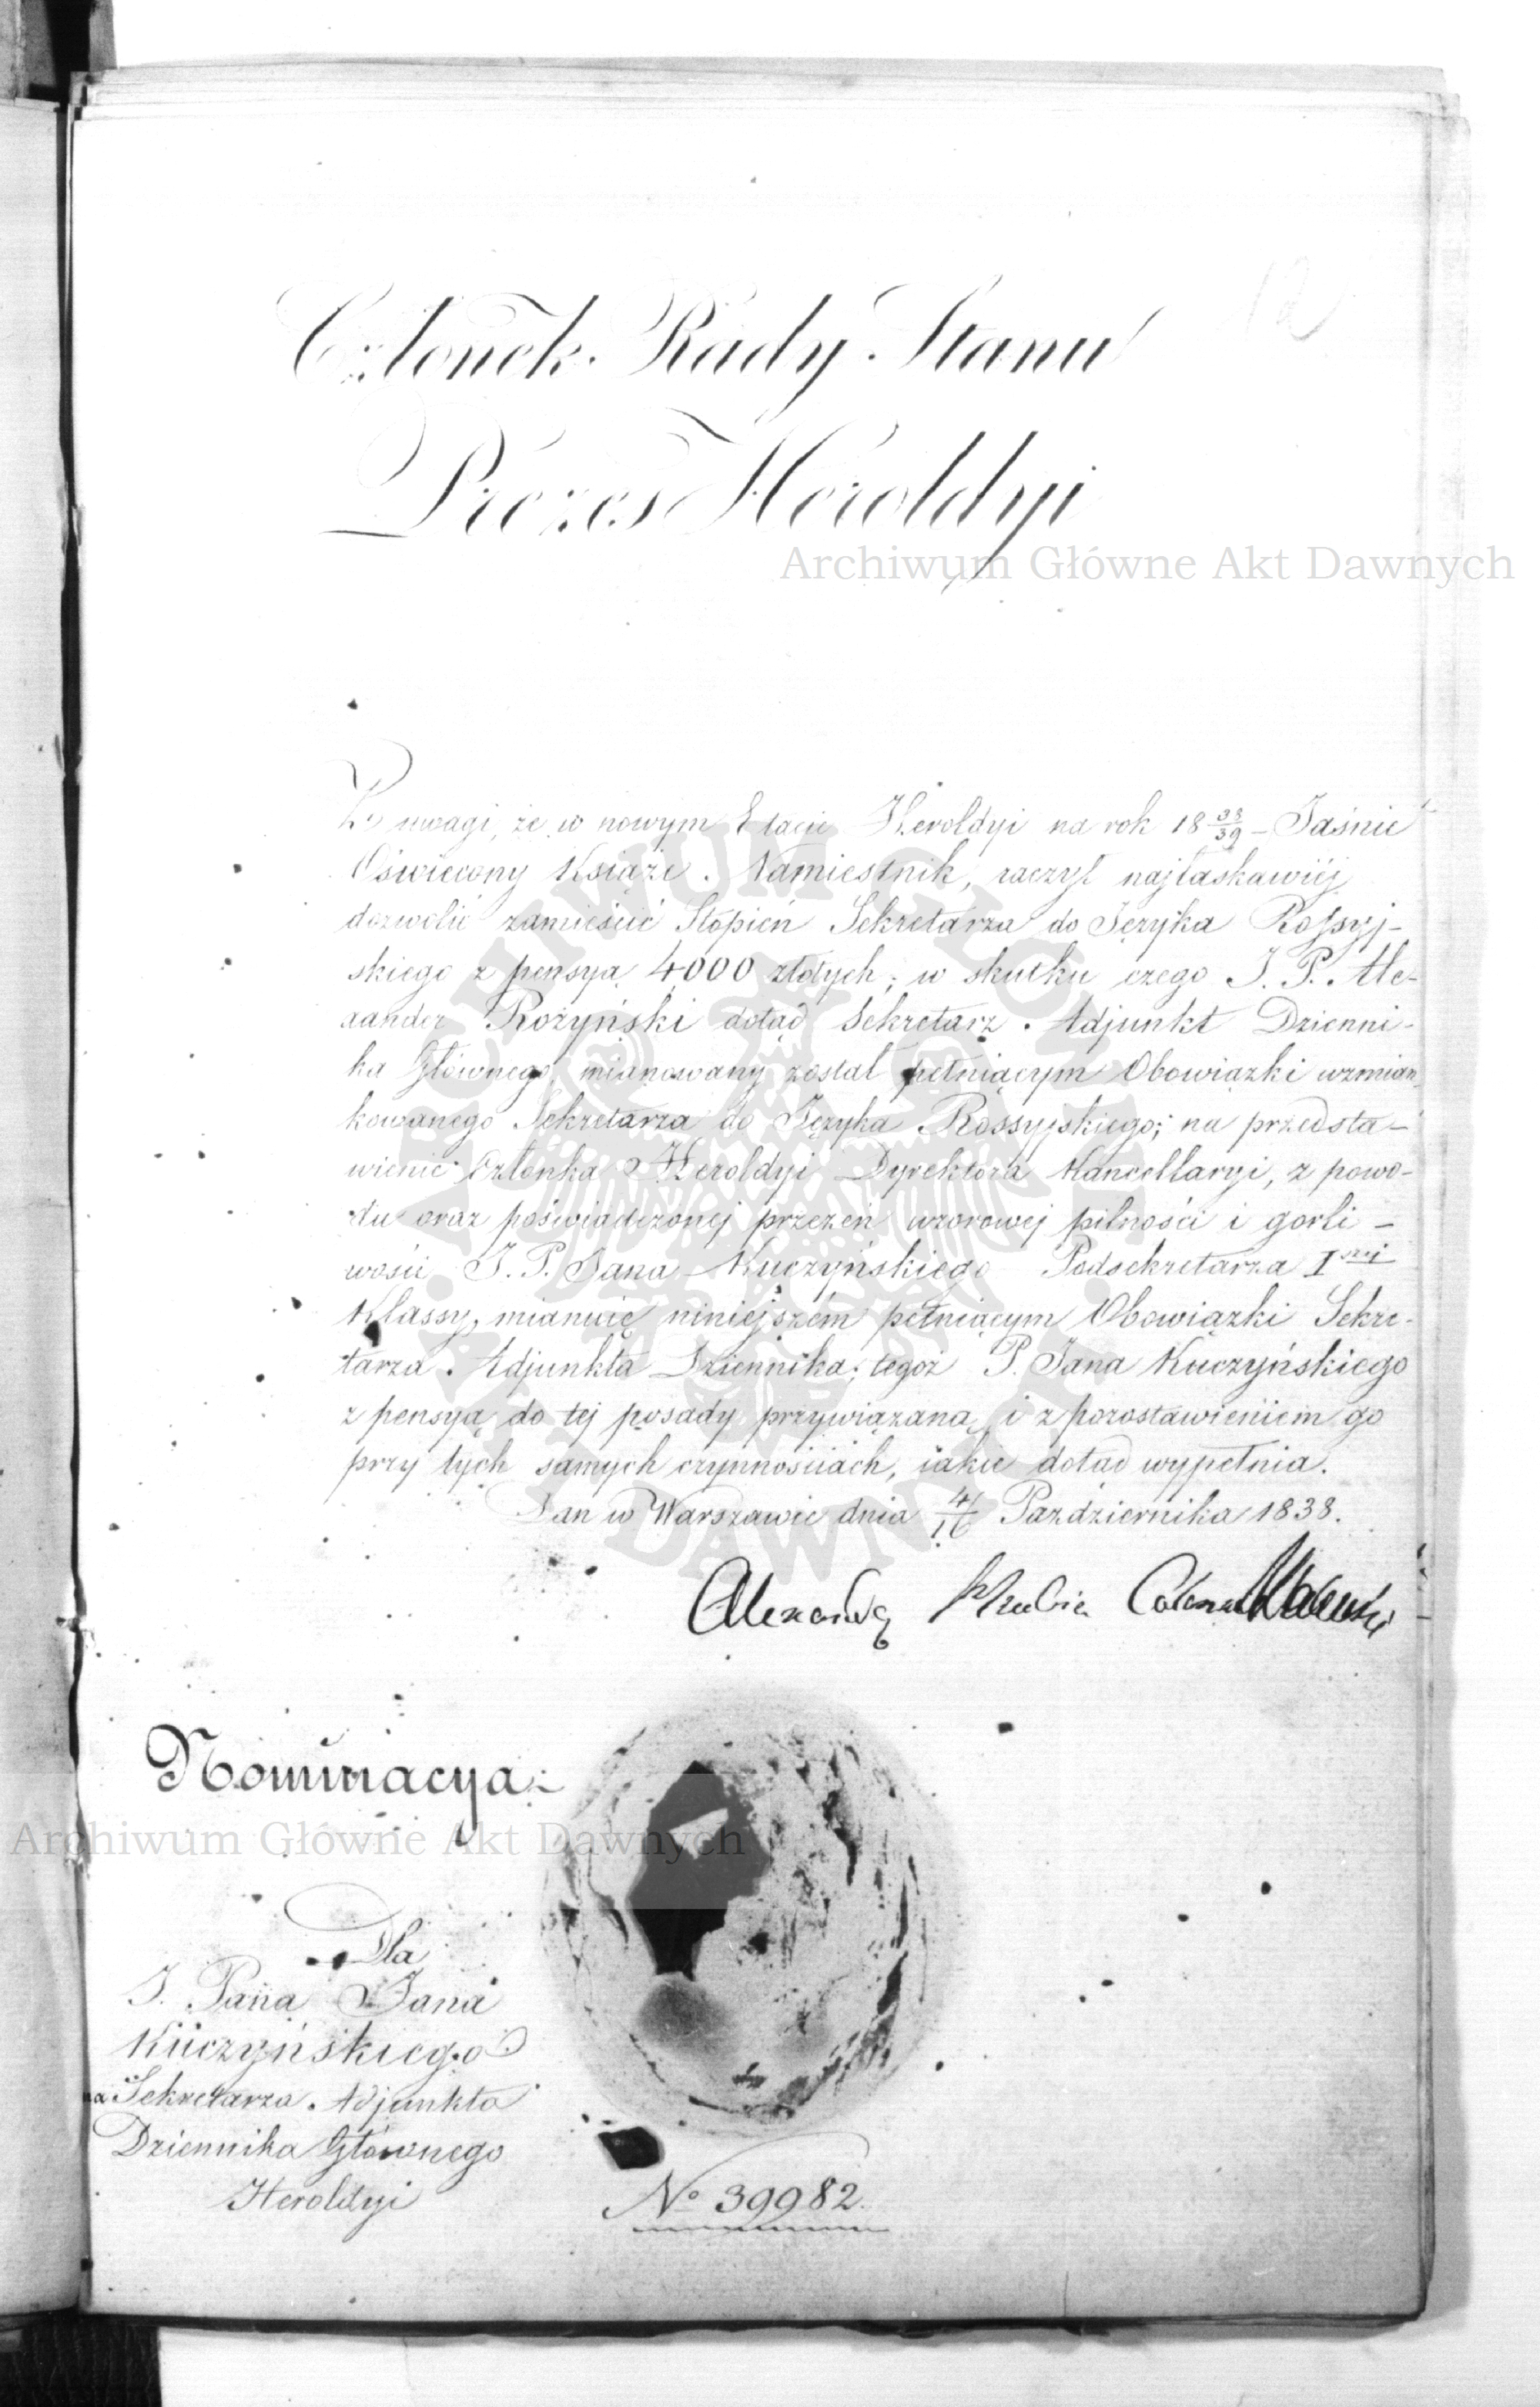 Członek Rady Stanu
Prezes Heroldyi
Archiwum Główne Akt Dawnych
Z uwagi, że w nowym Etacie Heroldyi na rok 18 38/39 – Jaśnie
Oświecony Książe Namiestnik, raczył najłaskawiéj
dozwolić zamieścić Stopień Sekretarza do Języka Rossyj-
skiego z pensyą 4000 złotych; w skutku czego J. P. Ale-
xander Rożyński dotąd Sekretarz Adjunkt Dzienni-
ka Głównego, mianowany został pełniącym Obowiązki wzmian
kowanego Sekretarza do Języka Rossyjskiego; na przedsta-
wienie Członka Heroldyi Dyrektora Kancellaryi, z powo-
du oraz poświadczonej przezeń wzorowej pilności i gorli-
wości J. P. Jana Kuczyńskiego Podsekretarza I
Klassy, mianuię niniejszém pełniącym Obowiązki Sekre-
tarza Adjunkta Dziennika; tegoż P. Jana Kuczyńskiego
z pensyą do tej posady przywiązaną i z pozostawieniem go
przy tych samych czynnościach, iakie dotąd wypełnia.
Dan w Warszawie dnia 4/16 Października 1838.
Alexander Hrabia Colonna Walewski
Nominacya
Archiwum Główne Akt Dawnych
Dla
J. Pana Jana
Kuczyńskiego
na Sekretarza Adjunkta
Dziennika Głównego
Heroldyi
No 39982